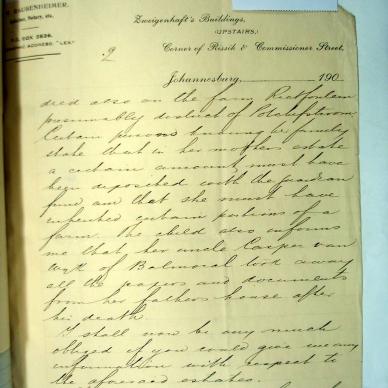 HAUBENHEIMER.
Notary, etc.
P.O. BOX 2836.
ADDRESS, "LEX."
Zweigenhaft's Buildings,
(UPSTAIRS)
Corner of Rissik & Commissioner Street.
2
Johannesburg, 190
died also on the farm Rietfontein
presumably district of Potchefstroom.
Certain persons knowing the family
state that in her mother's estate
a certain amount must have
been deposited with the guardian
fund and that she must have
inherited certain portions of a
farm. The child also informs
me that her uncle Casper van
Wyk of Balmoral took away
all the papers and documents
from her father's house after
his death.
I shall now be very much
obliged if you could give me any
information with respect to
the aforesaid estates.